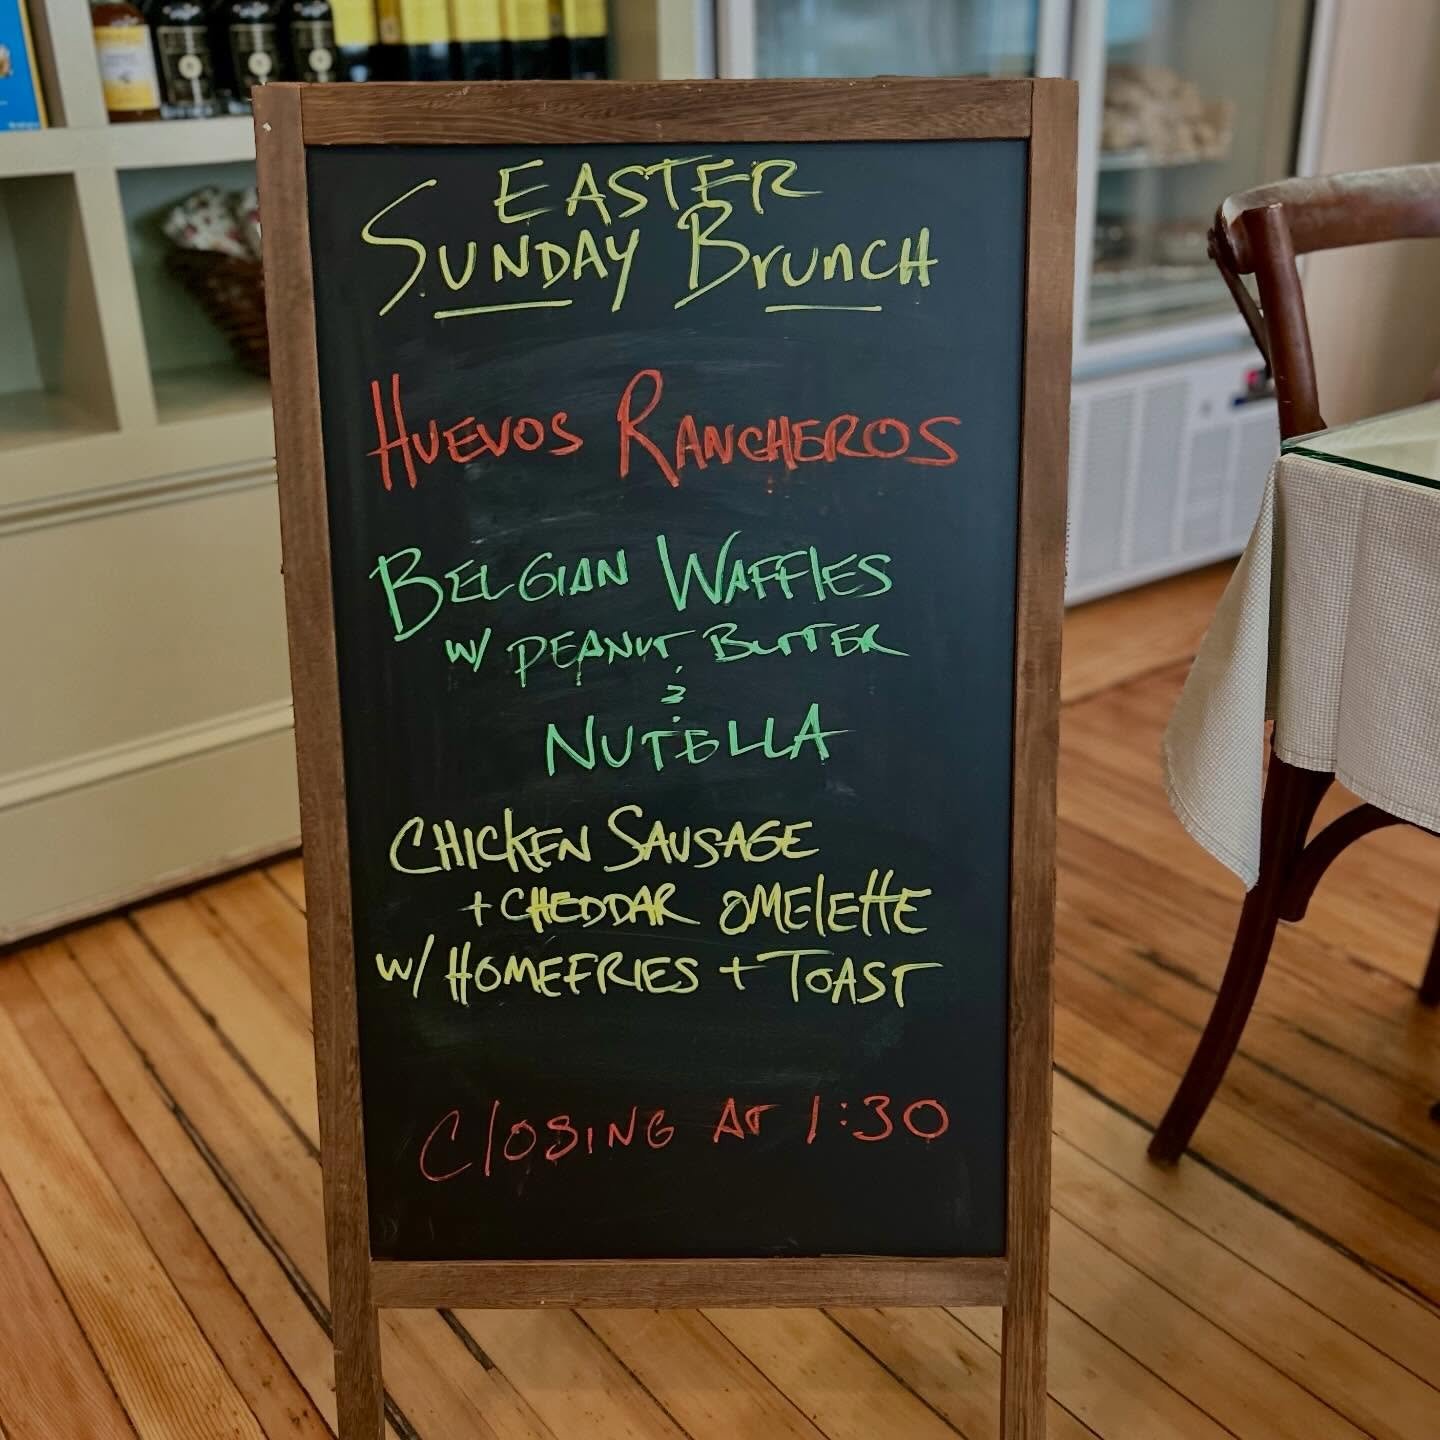 EASTER
SUNDAY BRUNCH
HUEVOS RANCHEROS
BELGIAN WAFFLES
W/ PEANUT BUTTER
&
NUTELLA
CHICKEN SAUSAGE
+ CHEDDAR OMELETTE
W/ HOMEFRIES + TOAST
CLOSING AT 1:30